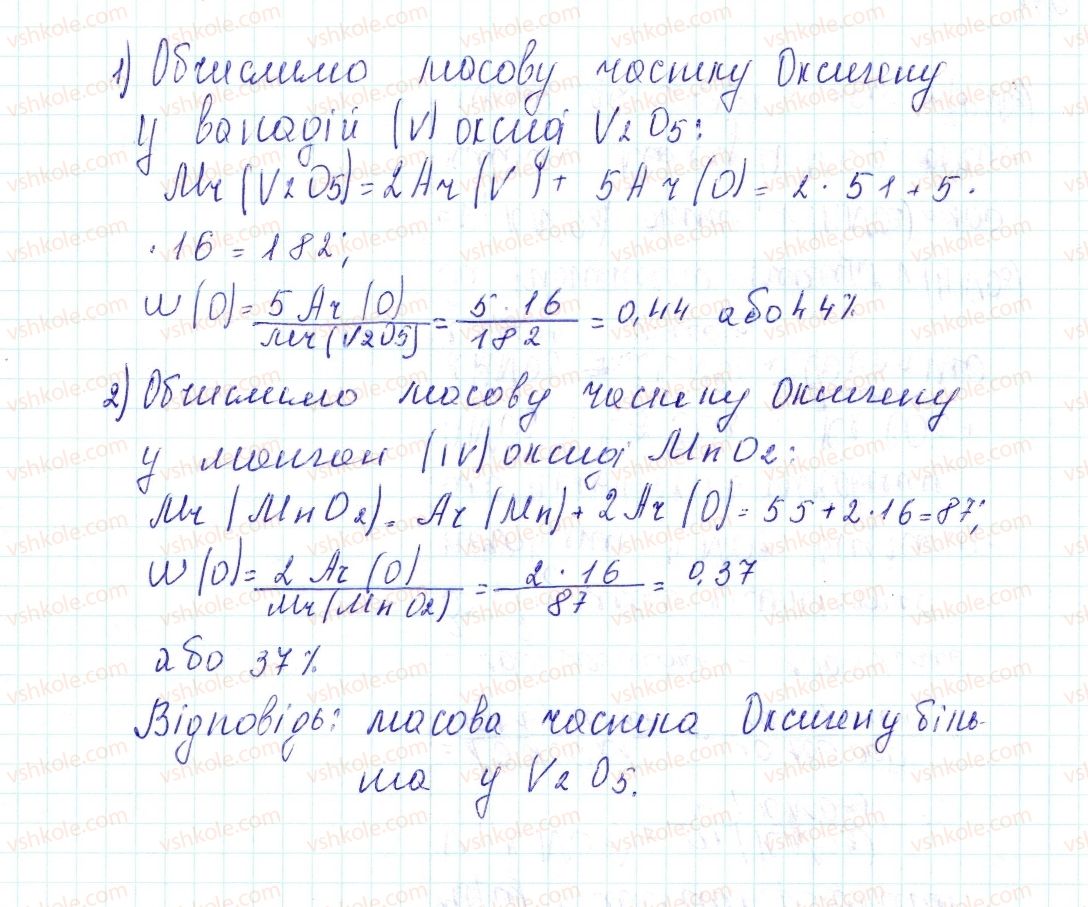 1) Обчислимо масову частку Оксигену
у ванадій (V) оксиді V2O5:
Mr (V2O5) = 2Ar (V) + 5Ar (O) = 2 · 51 + 5 ·
· 16 = 182;
w (O) = 5 Ar (O) / Mr (V2O5) = 5 · 16 / 182 = 0,44 або 44%
2) Обчислимо масову частку Оксигену
у манган (IV) оксиді MnO2:
Mr (MnO2) = Ar (Mn) + 2Ar (O) = 55 + 2 · 16 = 87;
w (O) = 2 Ar (O) / Mr (MnO2) = 2 · 16 / 87 = 0,37
або 37%
Відповідь: масова частка Оксигену біль-
ша у V2O5.